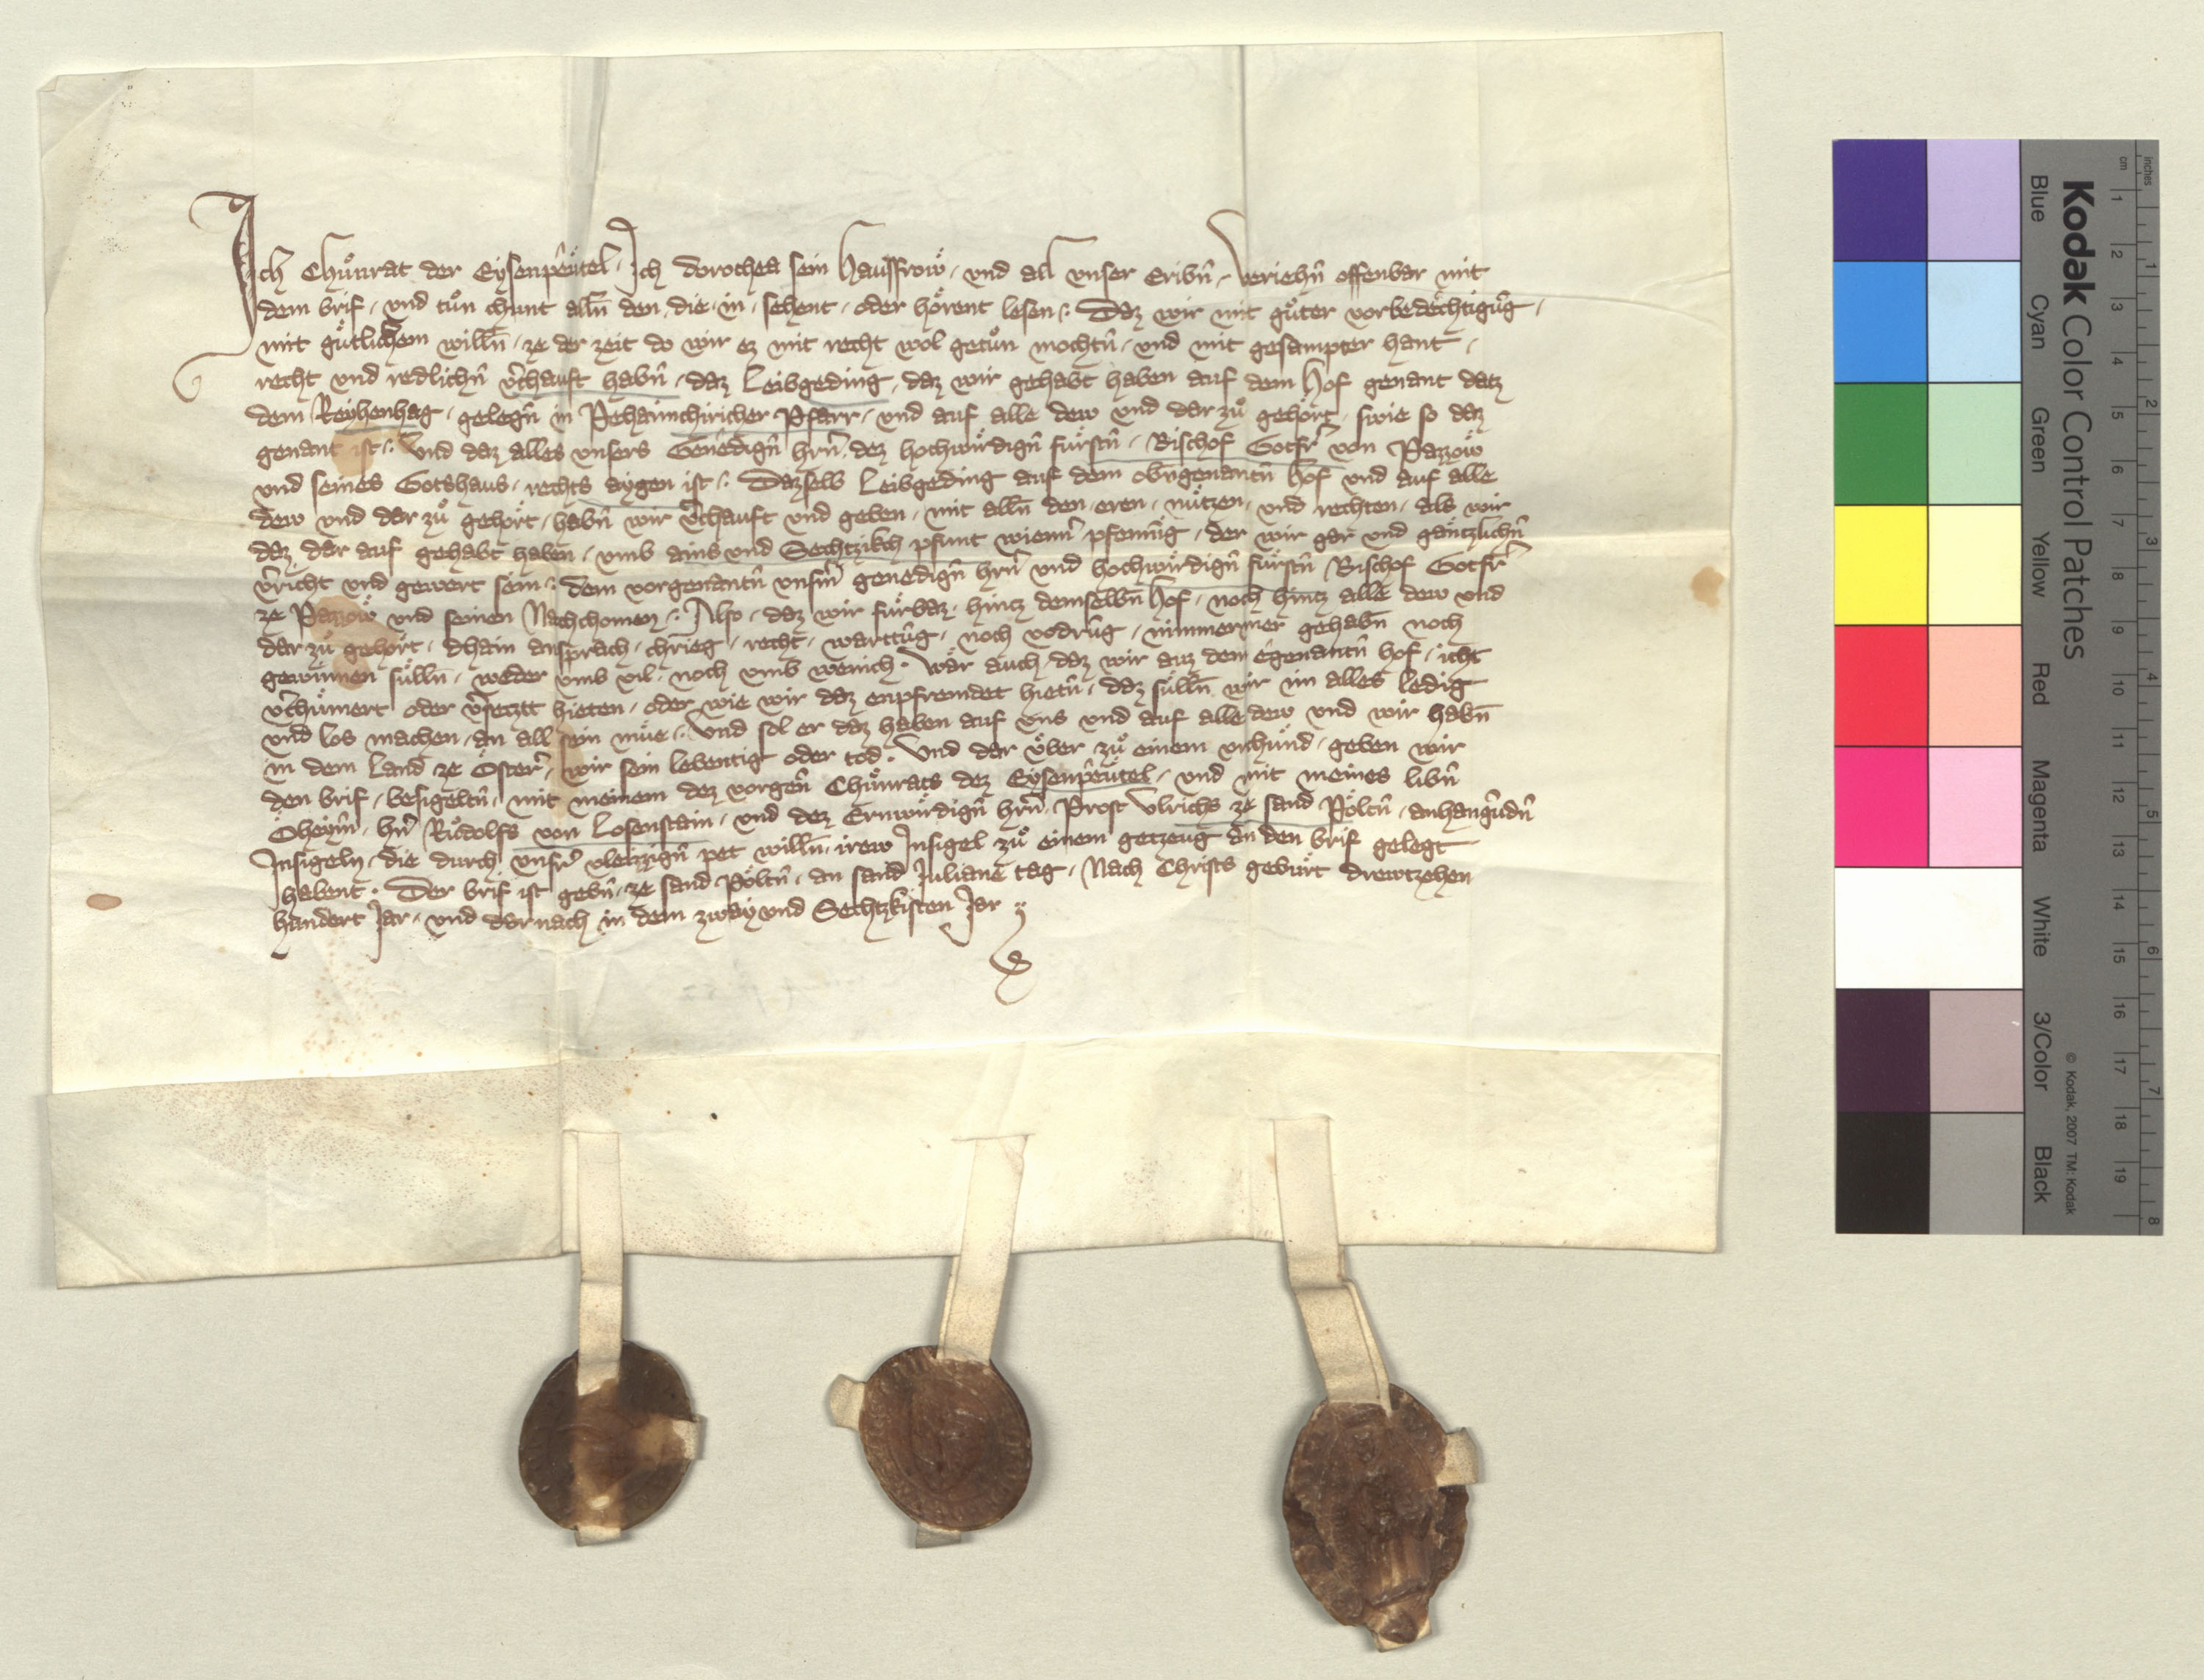 Ich Chuͦnrat der Eysenpeutel · Ich dorothea sein Hausfrow · und all unser Eribn̄ · Veriehn̄ offenbar mit
dem brif · und tuͦn chunt alln̄ den · die · in · sehent · oder hoͤrent lesen · Daz wir mit guͦter vorbedechtigūg ·
mit guͤtlichem willn̄ · ze der zeit do wir ez mit recht wol getuͦn mochtn̄ · und mit gesampter hant ·
recht und redlichn̄ v̄chauft habn̄ · daz Leibgeding · daz wir gehabt haben auf dem Hof genant datz
dem Reyhenhag · gelegn̄ in Pehaimchiricher Pfarr · und auf alle dew und dar zuͦ gehoͤrt · swie so daz
genant ist · Und daz alles unsers Genedign̄ hrn̄ · dez hochwuͤrdign̄ fuͤrstn̄ · Bischof Gotfr̄ von Pazzow
und seines Gotshaus · rechts aygen ist · Dazselb Leibgeding auf dem obn̄genantn̄ Hof und auf alle
dew und dar zuͦ gehoͤrt · habn̄ wir v̄chauft und geben · mit alln̄ den · eren · nuͤtzen · und rechten · als wir
daz dar auf gehabt haben · umb ains und Sechtzikch pfunt wienn̄ pfennig · der wir gar und gaͤntzlichn̄
v̄richt und gewert sein · dem vorgenantn̄ unsm̄ genedign̄ hrn̄ und hochwuͤrdign̄ fuͤrstn̄ Bischof Gotfr̄
ze Pazzow und seinen Nachchomen · Also · daz wir fuͤrbaz · hintz demselbn̄ Hof · noch hintz alle dew und
dar zuͦ gehoͤrt · dhain ansprach · chrieg · recht · warttūg · noch vodrūg · nimmermer gehabn̄ noch
gewinnen suͤlln̄ · weder umb vil · noch umb wenich · Waͤr auch daz wir auz dem egenantn̄ hof · icht
v̄chuͤmert oder v̄setztt hieten · oder wie wir daz enpfremdet hietn̄ · daz suͤlln̄ wir im alles ledig
und los machen · an all sein muͤe · Und sol er daz haben auf uns und auf alle dew und wir habn̄
in dem Land ze Oster̄ · wir sein lebentig oder tod · Und dar uͤber zuͦ einem urchuͤnd · geben wir
den brif · besigeltn̄ · mit meinem dez vorgen̄ Chuͦnrats dez Eysenpeutel · und mit meines libn̄
Oheym̄ · hn̄ Ruͦdolfs von Losenstain · und dez Ernwuͤrdign̄ hrn̄ · Prost Ulrichs ze sand Poͤltn̄ · anhangūdn̄
Insigeln · die durch unsr̄ vleizzign̄ pet willn̄ · irew Insigel · zuͦ einem getzeug an den brif gelegt
habent · Der brif ist gebn̄ · ze sand Poͤltn̄ · an sand Juliane tag · Nach Christs geburt drewtzehen
hundert Jar · und dar nach in dem zway und Sechtzkisten Jar
Kodak Color Control Patches
Blue Cyan Green Yellow Red Magenta White 3/Color Black
© Kodak, 2007 TM: Kodak
cm 1 2 3 4 5 6 7 8 9 10 11 12 13 14 15 16 17 18 19
inches 1 2 3 4 5 6 7 8